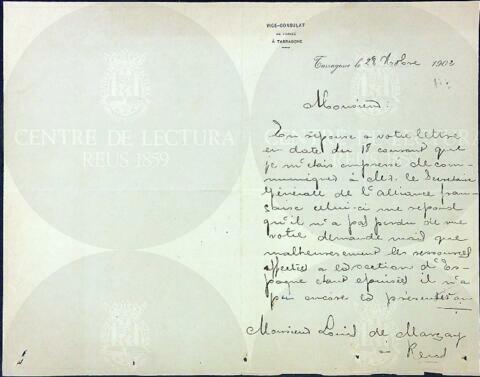 VICE-CONSULAT
DE FRANCE
À TARRAGONE
Tarragone le 28 Octobre 1902
Monsieur:
En réponse a votre lettre
en date du 18 courant que
je m'étais empressé de com-
muniquer à Mr. le Secrétaire
Général de l'Alliance fran-
çaise celui-ci me répond
qu'il n'a pas perdu de vue
votre demande mais que
malheureusement les ressources
affectées a la section d'Es-
pagne étant épuisées il n'a
pu encore la présenter
Monsieur Louis de Marzay
Reus
CENTRE DE LECTURA
REUS 1859